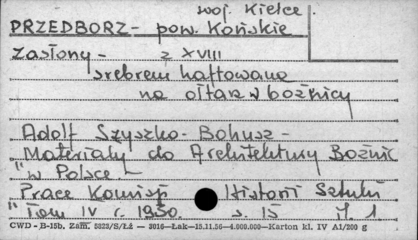 woj. Kielce.
PRZEDBORZ - pow. Końskie
Zasłony - z XVIII
srebrem haftowane
na ołtarz w bożnicy
Adolf Szyszko-Bohusz -
Materiały do Architektury Bożnic
"w Polsce -
Prace Komisji Historii Sztuki
"Tom IV r. 1930. s. 15 il. 1
CWD - B-15b. Zam. 5823/S/Łż - 3016-Łak-15.11.56-4.000.000-Karton kl. IV A1/200 g